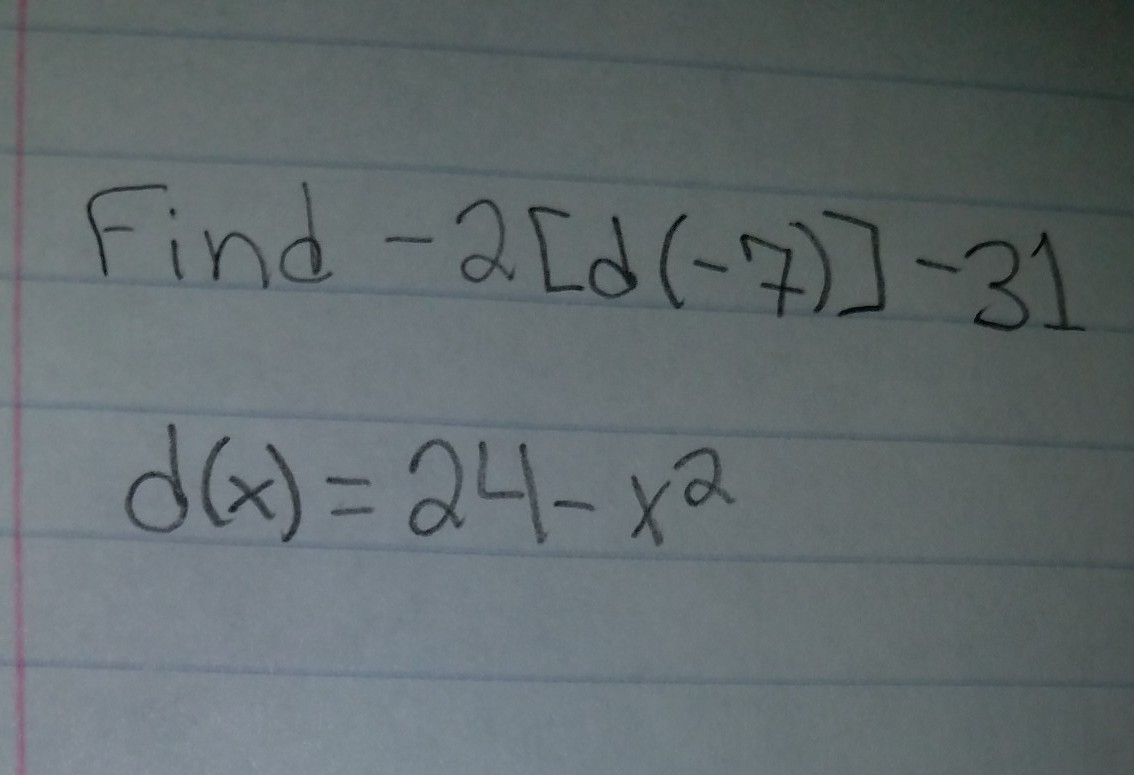 Find -2[d(-7)] -31
d(x) = 24 - x²